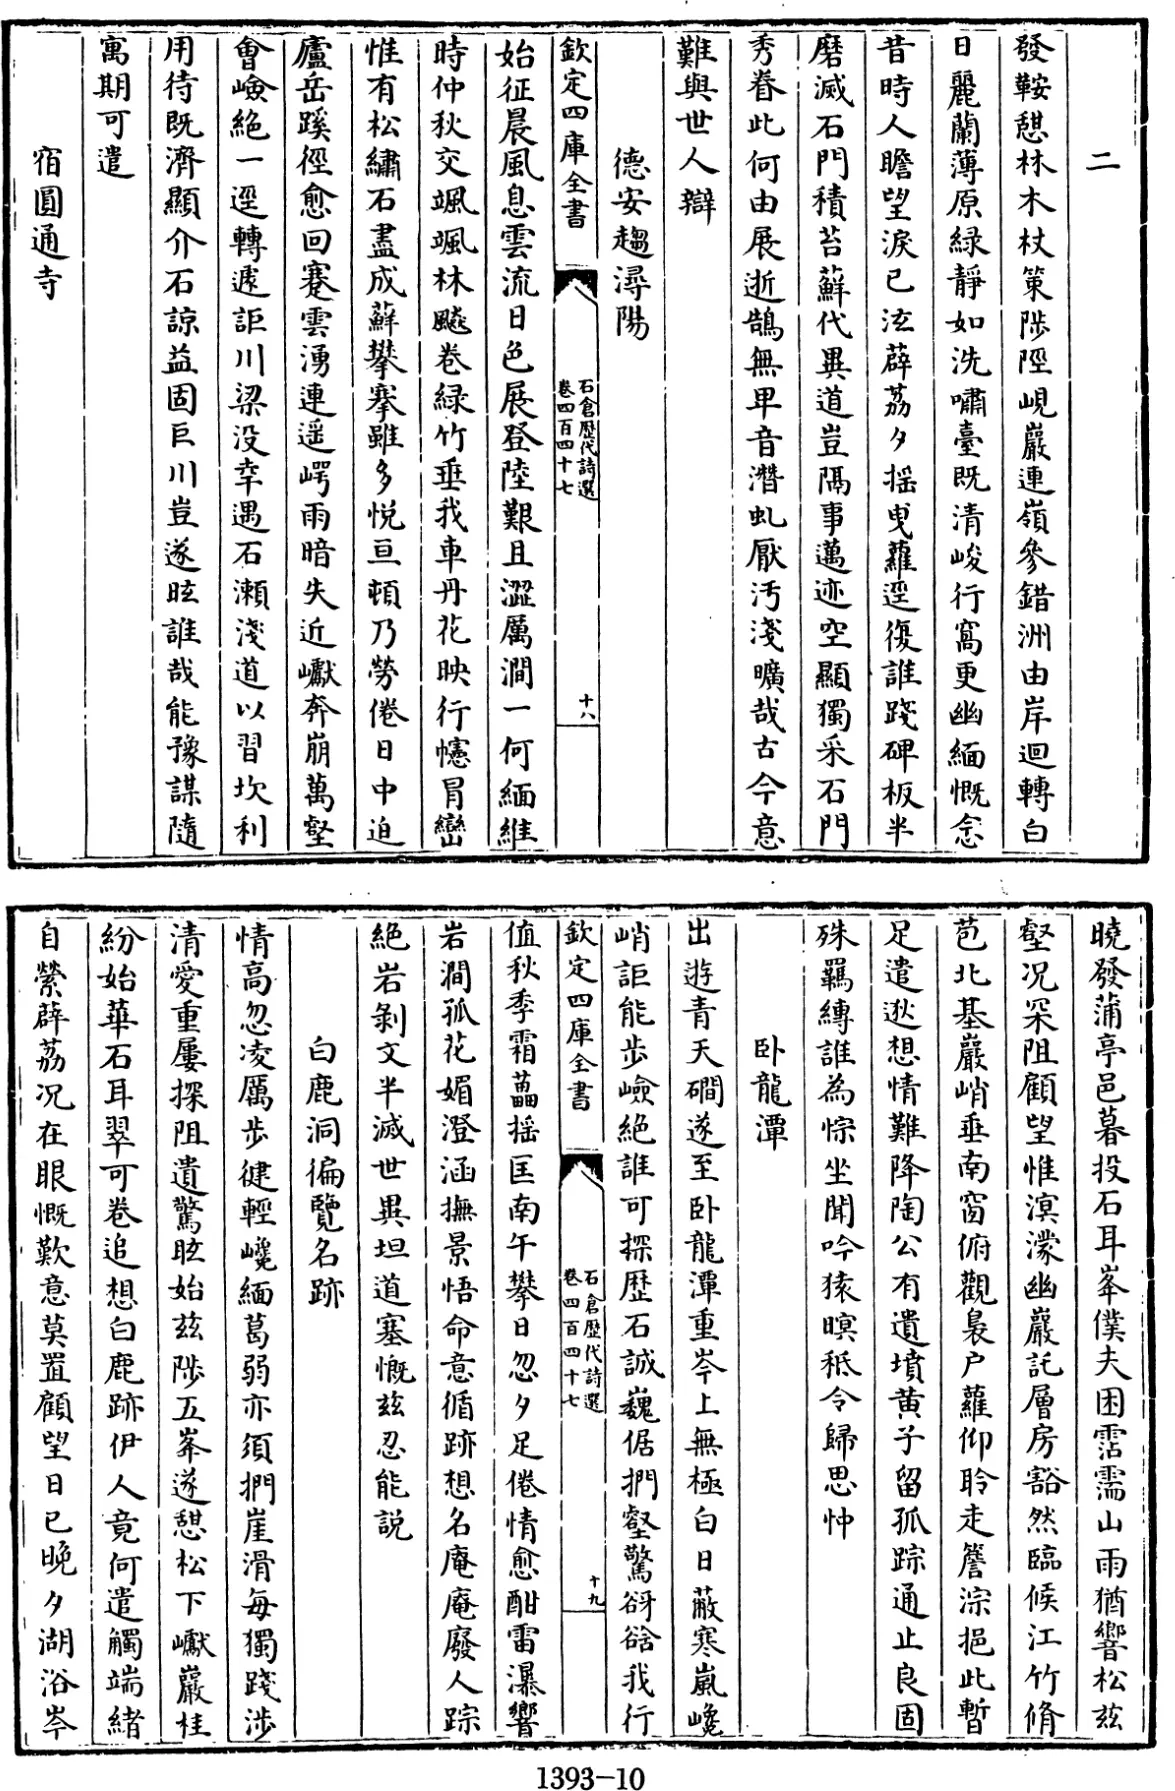 二
發鞍憇林木杖策陟陘峴巖連嶺參錯洲由岸迴轉白
日麗蘭薄原緑靜如洗嘯臺既清峻行窩更幽緬慨念
昔時人瞻望淚已泫薜荔夕揺曳蘿逕復誰踐碑板半
磨滅石門積苔蘚代異道豈隔事邁迹空顯獨采石門
秀眷此何由展逝鵠無卑音潛虬厭汚淺曠哉古今意
難與世人辯
德安趨潯陽
欽定四庫全書
石倉歷代詩選
卷四百四十七
十八
始征晨風息雲流日色展登陸艱且澀厲澗一何緬維
時仲秋交颯颯林飈卷緑竹垂我車丹花映行幰冐巒
惟有松繡石盡成蘚攀搴雖多悦亘頓乃勞倦日中迫
廬岳蹊徑愈回蹇雲湧連遥崿雨暗失近巘奔崩萬壑
會嶮絶一逕轉遽詎川梁没幸遇石瀨淺道以習坎利
用待既濟顯介石諒益固巨川豈遂眩誰哉能豫謀隨
寓期可遣
宿圓通寺
曉發蒲亭邑暮投石耳峯僕夫困霑濡山雨猶響松兹
壑况罙阻顧望惟溟濛幽巖託層房豁然臨候江竹脩
苞北基巖峭垂南窗俯觀裊户蘿仰聆走簷淙挹此暫
足遣逖想情難降陶公有遺墳黄子留孤踪通止良固
殊羈縛誰為悰坐聞吟猿暝秪令歸思忡
卧龍潭
出遊青天磵遂至卧龍潭重岑上無極白日蔽寒嵐巉
峭詎能步嶮絶誰可探歴石誠巍倨捫壑驚谺谽我行
欽定四庫全書
石倉歷代詩選
卷四百四十七
十九
值秋季霜藟揺匡南午攀日忽夕足倦情愈酣雷瀑響
岩澗孤花媚澄涵撫景悟命意循跡想名庵庵廢人踪
絶岩剝文半滅世異坦道塞慨兹忍能説
白鹿洞徧覽名跡
情高忽凌厲步徤輕巉緬葛弱亦須捫崖滑每獨踐涉
清愛重屢探阻遺驚眩始兹陟五峯遂憇松下巘巖桂
紛始華石耳翠可卷追想白鹿跡伊人竟何遣觸端緒
自縈薜荔况在眼慨歎意莫置顧望日已晚夕湖浴岑
1393-10